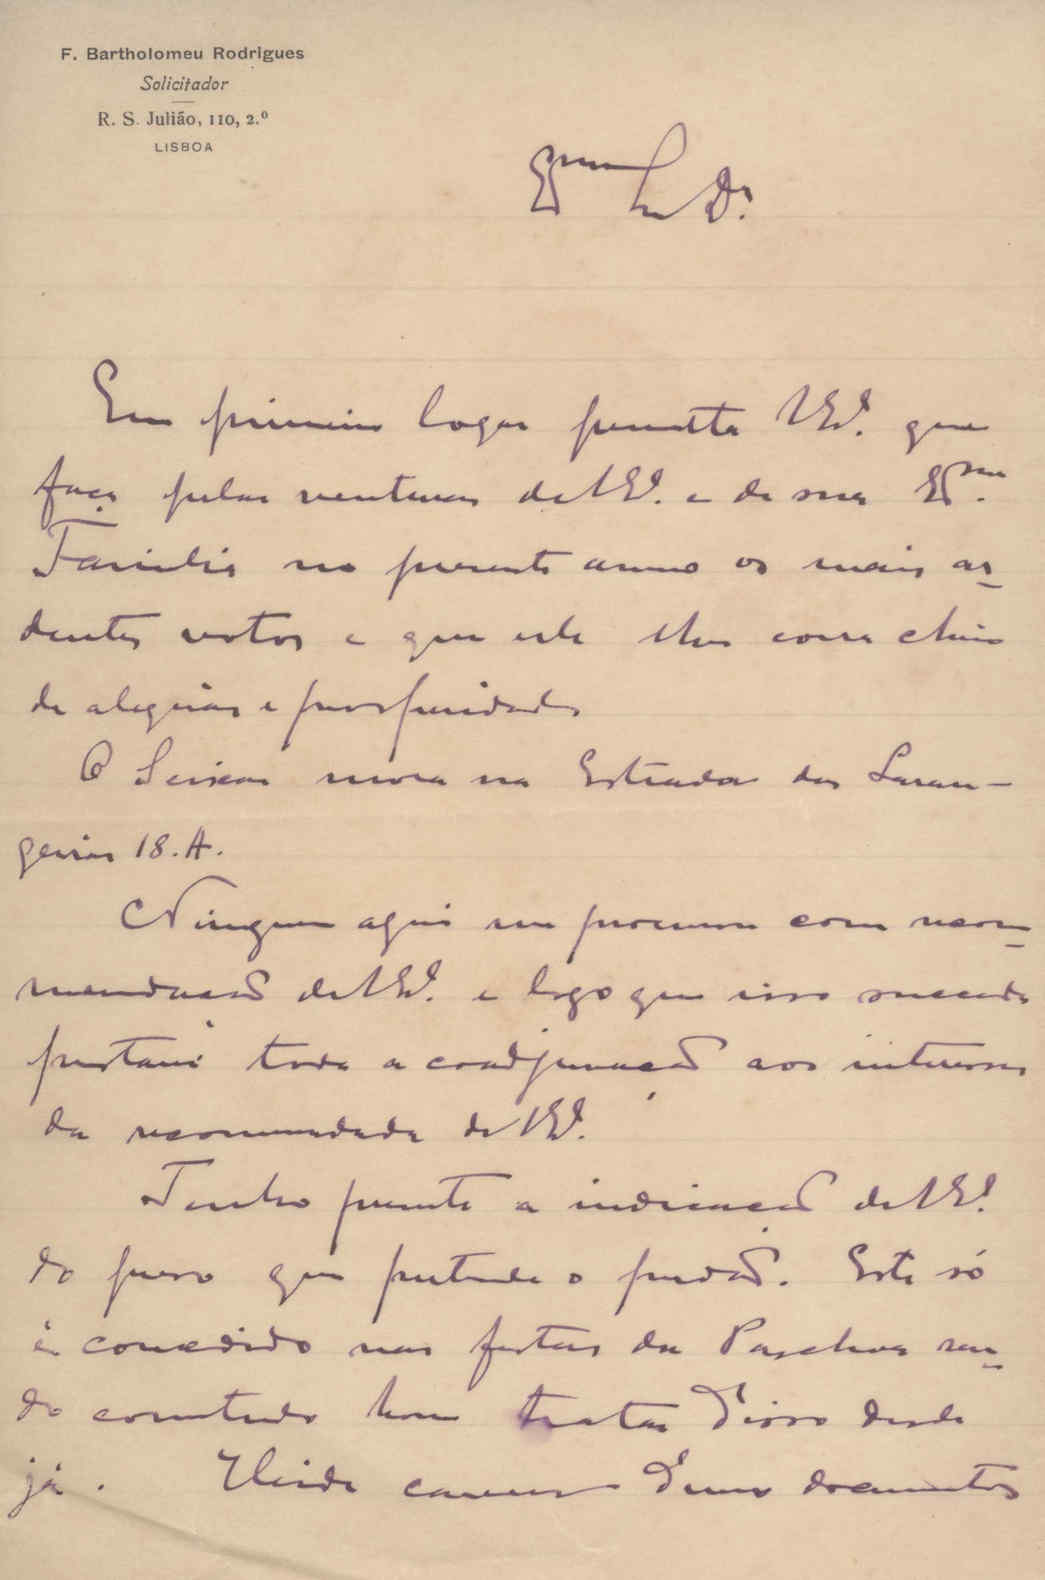 F. Bartholomeu Rodrigues
Solicitador
R. S. Julião, 110, 2.º
LISBOA
Exmo Sr Dr.
Em primeiro logar permitta V Exª. que
faça pelas venturas de V Exª. e de sua Exma.
Familia no presente anno os mais ar-
dentes votos e que este lhes corra cheio
de alegrias e prosperidades
O Seixas mora na Estrada das Laran-
geiras 18.A.
Ninguem aqui me procurou com recom-
mendação de V Exª. e logo que isso succeda
prestarei toda a coadjuvação aos interesses
da recomendada de V Exª.
Tenho presente a indicação de V Exª.
do preso que pretende o perdão. Este só
é concedido nas festas da Paschoa sen-
do comtudo bom tratar d'isso desde
já. careça d'uns documentos